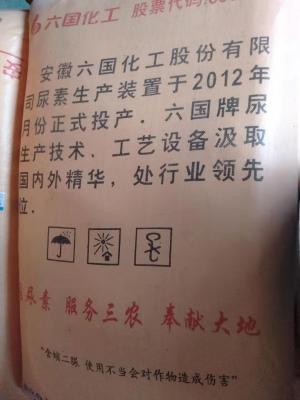 六国化工 股票代码:600
安徽六国化工股份有限
司尿素生产装置于2012年
月份正式投产．六国牌尿
生产技术、工艺设备汲取
国内外精华，处行业领先
位．
尿素 服务三农 奉献大地
"含缩二脲 使用不当会对作物造成伤害"